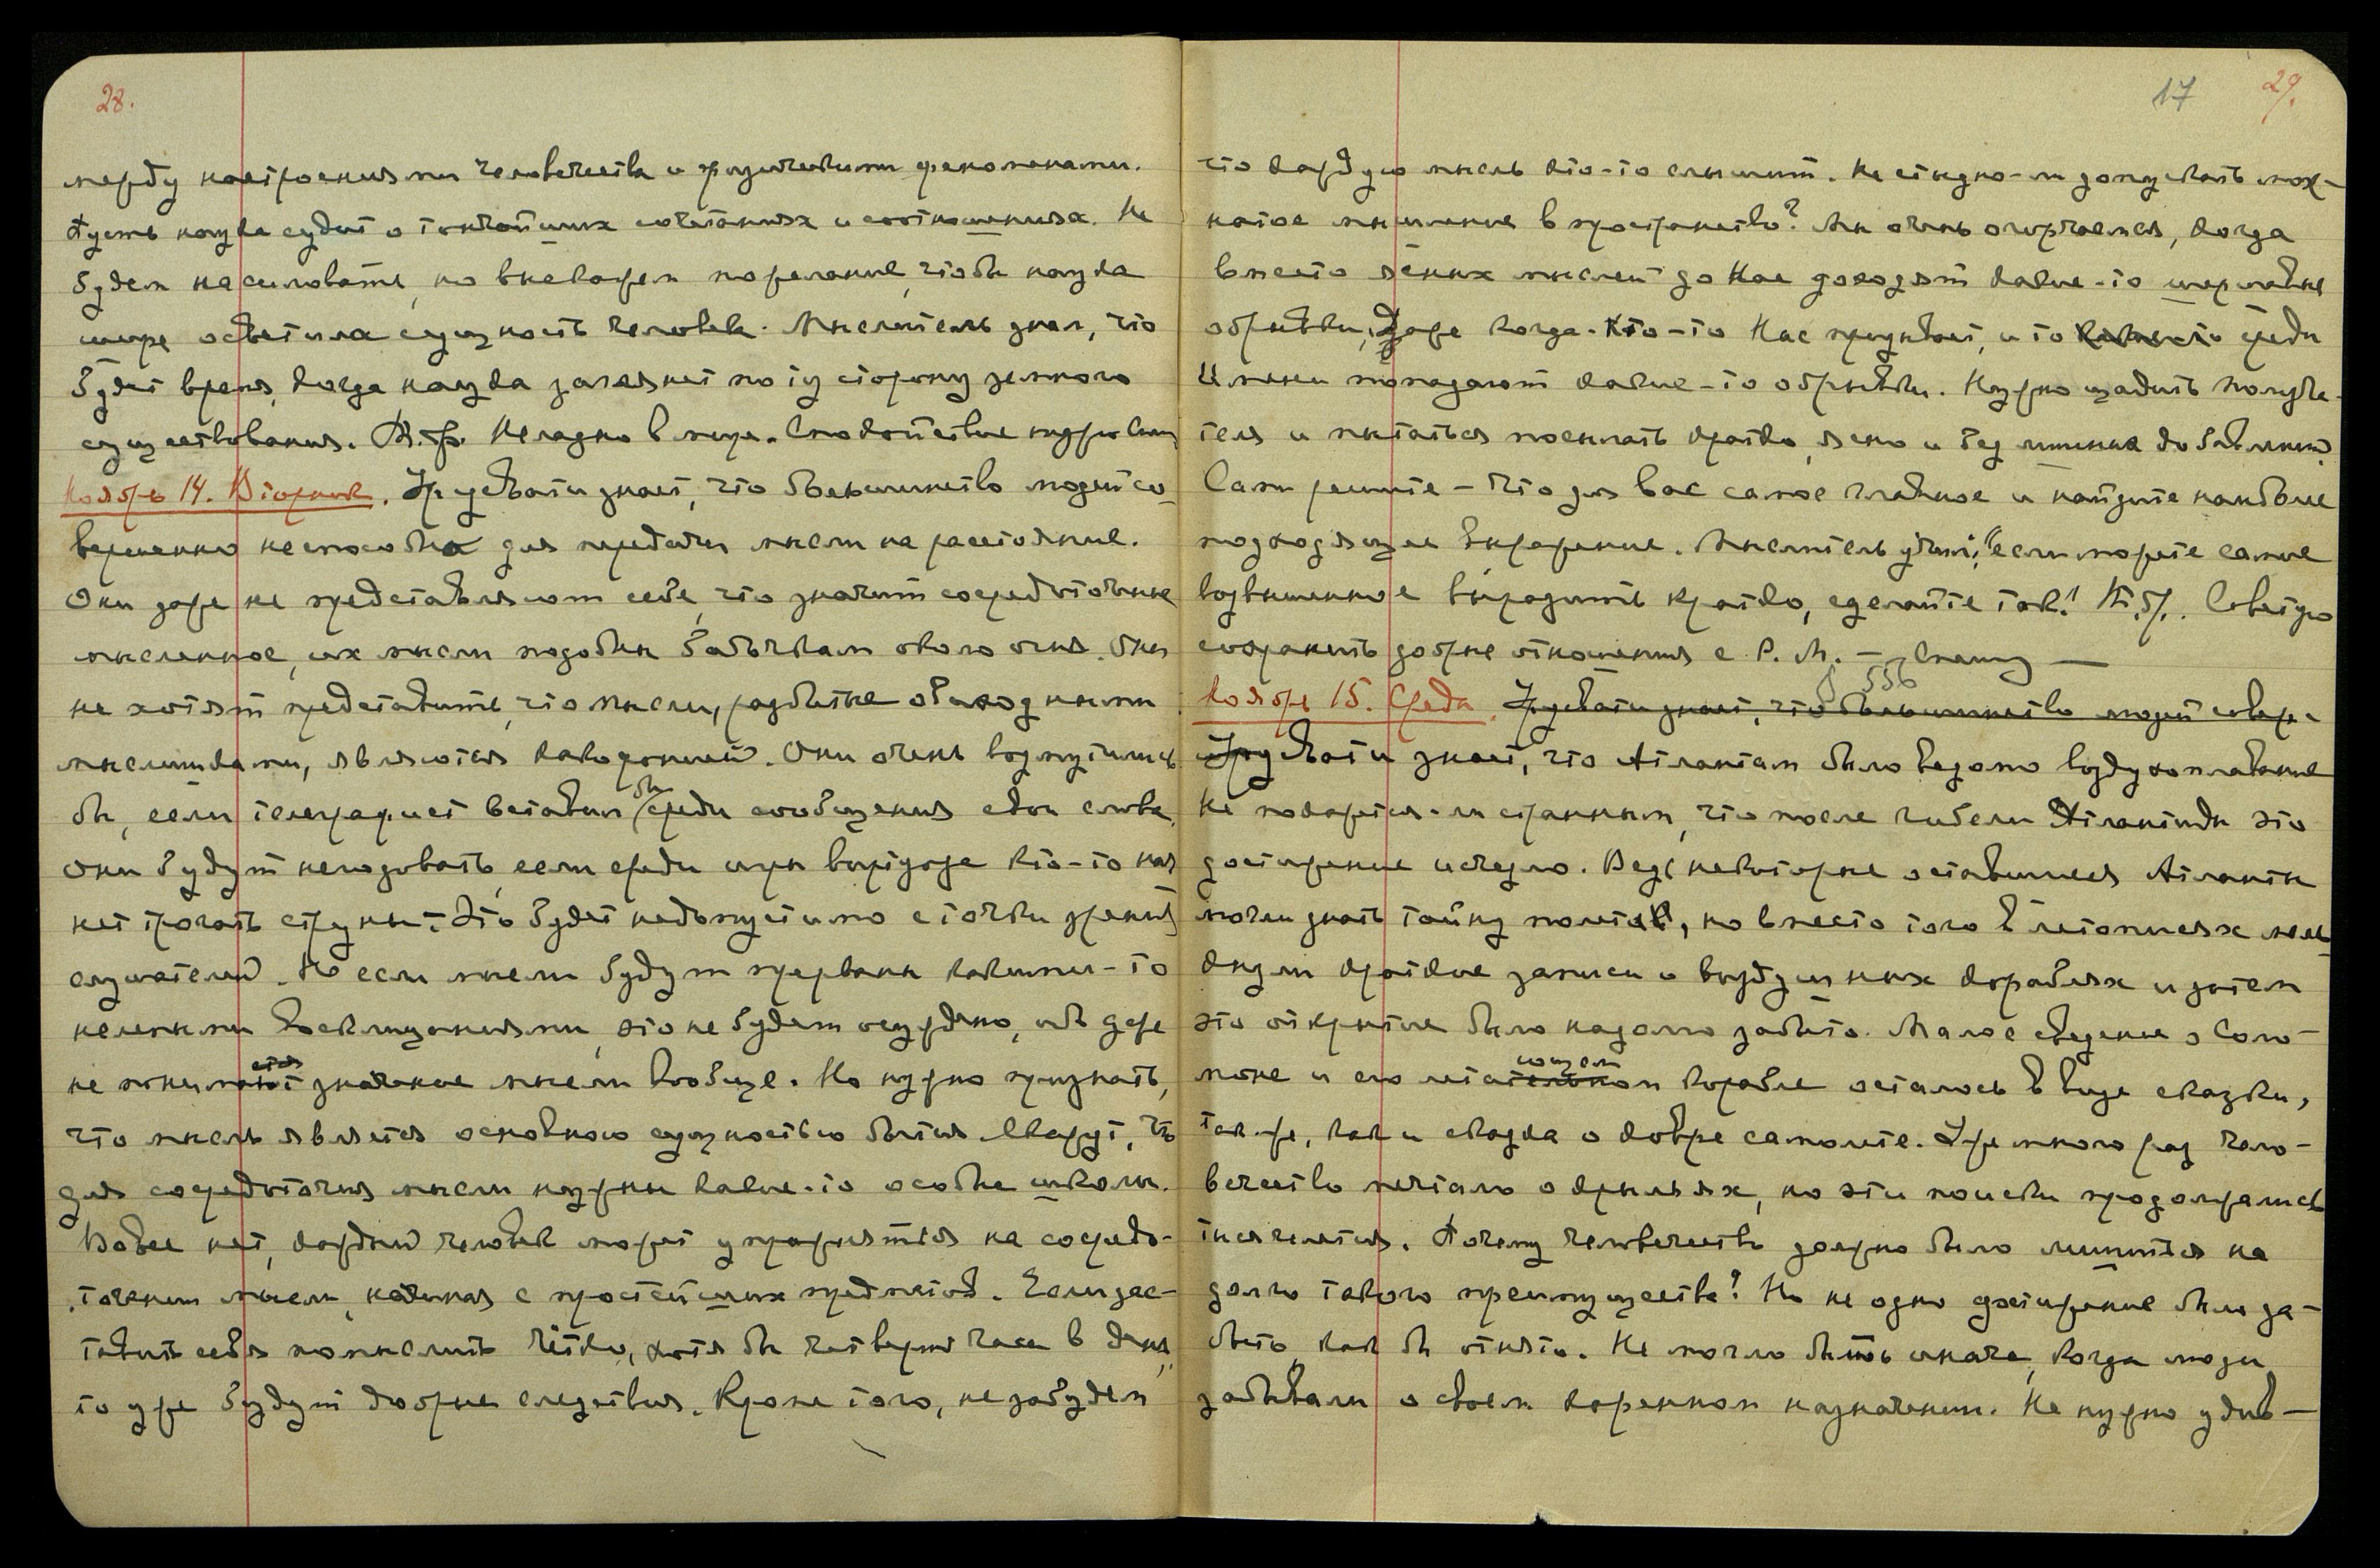 28.
между настроениями человечества и физическими феноменами.
Пусть наука судит о тончайших сочетаниях и соотношениях. Не
будем насиловать, но выскажем пожелание, чтобы наука
шире осветила сущность человека. Мыслитель знал, что
будет время, когда наука заглянет по ту сторону земного
существования. Неладно в мире. Спокойствие
Ноябрь 14. Вторник. Урусвати знает, что большинство людей со-
вершенно неспособна для передачи мысли на расстояние.
Они даже не представляют себе, что значит сосредоточение
мысленное, их мысли подобны бабочкам около огня. Они
не хотят представить, что мысли, разбитые обиходными
мыслишками, являются какофонией. Они очень возмутились
бы, если телеграфист вставил бы среди сообщения свои слова.
Они будут негодовать, если среди игры виртуоза кто-то нач
нет трогать струны. Это будет недопустимо с точки зрения
слушателей. Но если мысли будут прерваны какими-то
нелепыми восклицаниями, это не будет осуждено, ибо даже
не понимается значение мысли вообще. Но нужно признать,
что мысль является основною сущностью бытия. Скажут, что
для сосредоточия мысли нужны какие-то особые школы.
Вовсе нет, каждый человек может упражняться на сосредо-
точении мысли, начиная с простейших предметов. Если зас-
тавить себя помыслить чётко, хотя бы четверть часа в день,
то уже будут добрые следствия. Кроме того, не забудем
17 29.
что каждую мысль кто-то слышит. Не стыдно-ли допускать мох-
натое мышление в пространство? Мы очень огорчаемся, когда
вместо ясных мыслей до Нас доходят какие-то шершавые
обрывки, Даже когда Кто-то Нас призывает, и то среди
Имени попадают какие-то обрывки. Нужно щадить получа-
теля и пытаться посылать кратко, ясно и без лишних добавлений.
Сами решите – что для вас самое главное и найдите наиболее
подходящее выражение. Мыслитель учил: "если можете самое
возвышенное выразить кратко, сделайте так! Советую
сохранить добрые отношения с Р. М. —
§ 556
Ноябрь 15. Среда. Урусвати знает, что большинство людей совер-
Урусвати знает, что Атлантам было ведомо воздухоплавание
Не покажется-ли странным, что после гибели Атлантиды это
достижение исчезло. Ведь некоторые оставшиеся Атланты
могли знать тайну полетов, но вместо того в летописях мель-
кнули краткие записи о воздушных кораблях и затем
это открытие было надолго забыто. Малое сведение о Соло-
моне и его летательном ющем корабле осталось в виде сказки,
так-же, как и сказка о ковре самолете. Уже много раз чело-
вечество мечтало о крыльях, но эти поиски продолжались
тысячелетия. Почему человечество должно было лишиться на
долго такого преимущества? Но не одно достижение было за-
быто, как бы отнято. Не могло быть иначе, когда люди
забывали о своем коренном назначении. Не нужно удив-